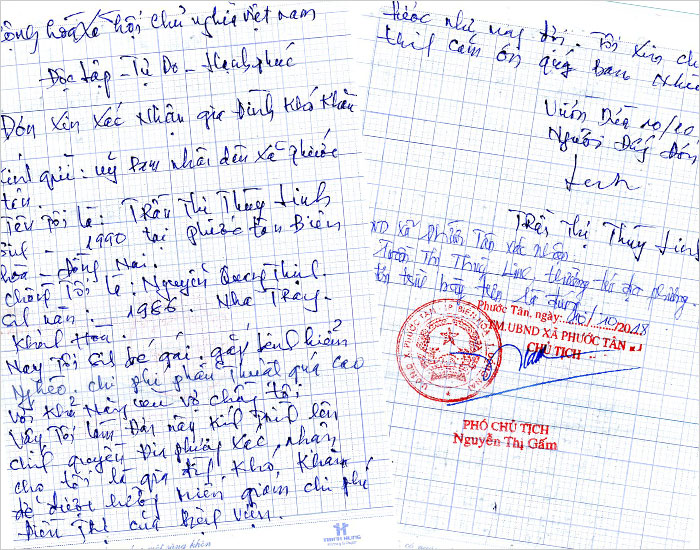 ộng hòa xã hội chủ nghĩa việt nam
Độc lập - Tự Do - Hạnh phúc
Đơn Xin Xác Nhận gia Đình Khó Khăn
Kính gửi: uỷ Ban nhân dân xã phước
tân.
Tên tôi là: TRần Thị Thùy Linh
Sinh - 1990 tại phước tân Biên
hòa - đồng Nai.
chồng Tôi là: Nguyễn Quang Thịnh.
Sinh năm: 1986. Nha Trang.
Khánh Hòa.
Nay Tôi sinh bé gái. gặp bệnh hiểm
Nghèo. chi phí phẩu Thuật quá cao
với khả năng của vợ chồng tôi
Vậy Tôi làm Đơn này kính trình lên
chính quyền Địa phương xác nhận
cho tôi là gia đình khó khăn
để được hưởng miễn giảm chi phí
Điền Trị của bệnh viện.
THÀNH HƯNG
tước như nay tôi. Tôi xin ch
thành cảm ơn qúy Ban Nhân
Vườn Dừa 10/10
Người Đứng đơn
Linh
TRần Thị Thùy Linh
UBND xã phước Tân xác nhận.
Trần Thị Thùy Linh, thường trú địa phương
tôi trình bày trên là đúng
Phước Tân, ngày: 10/10/2018
TM.UBND XÃ PHƯỚC TÂN
CHỦ TỊCH
PHÓ CHỦ TỊCH
Nguyễn Thị Gấm